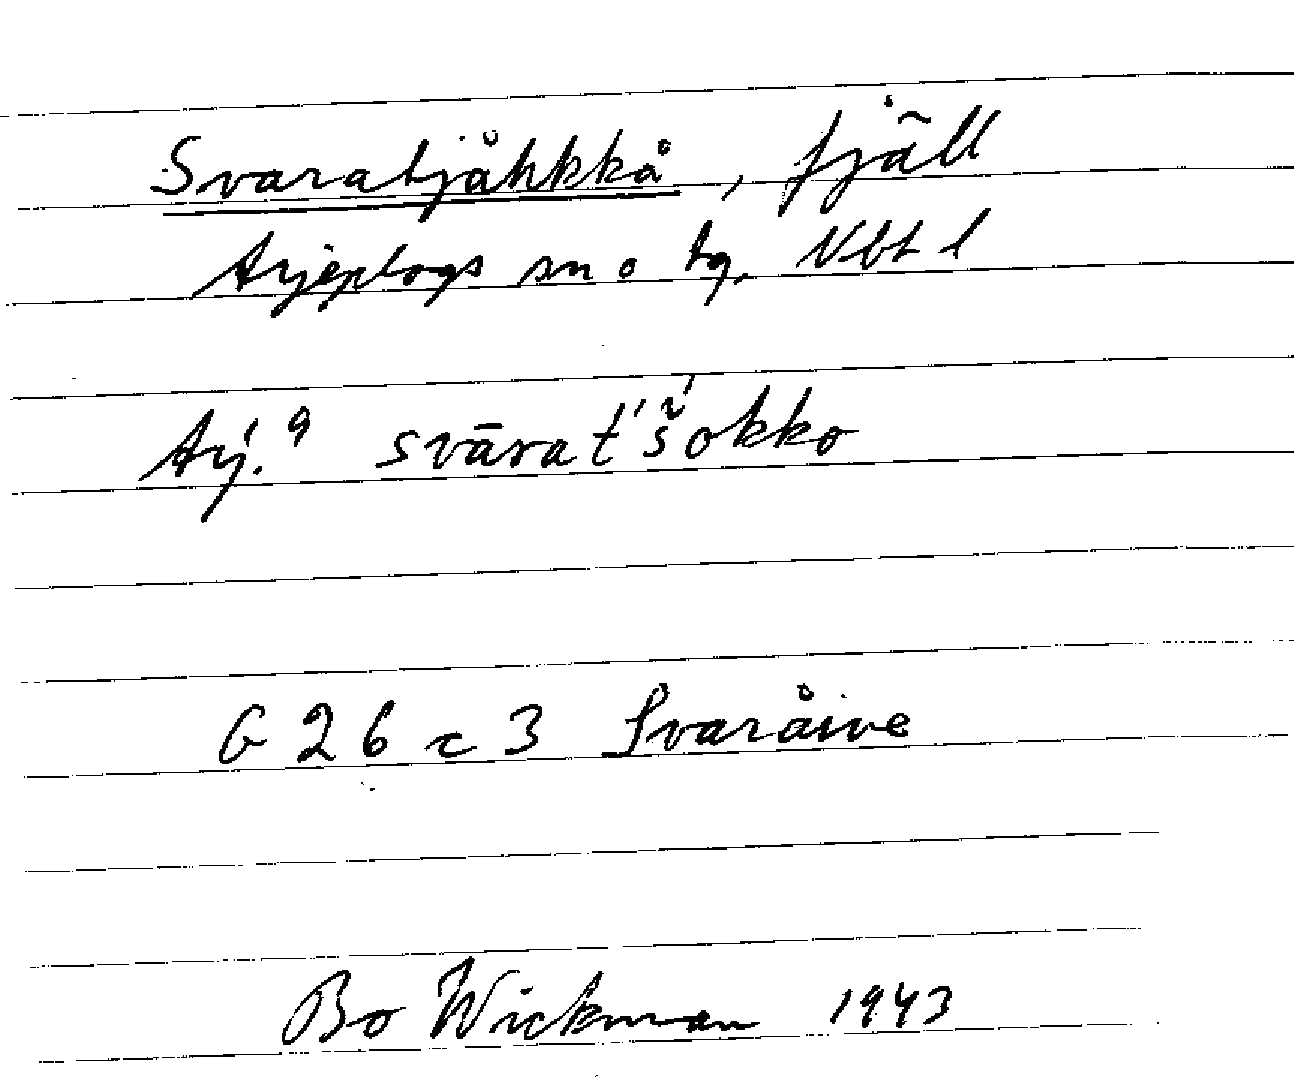 Svaratjåhkkå, fjäll
Arjeplogs sn o tg, Vbt l
Arj. 9 svārat'š́okko
G 26 c 3 Svaråive
Bo Wickman 1943